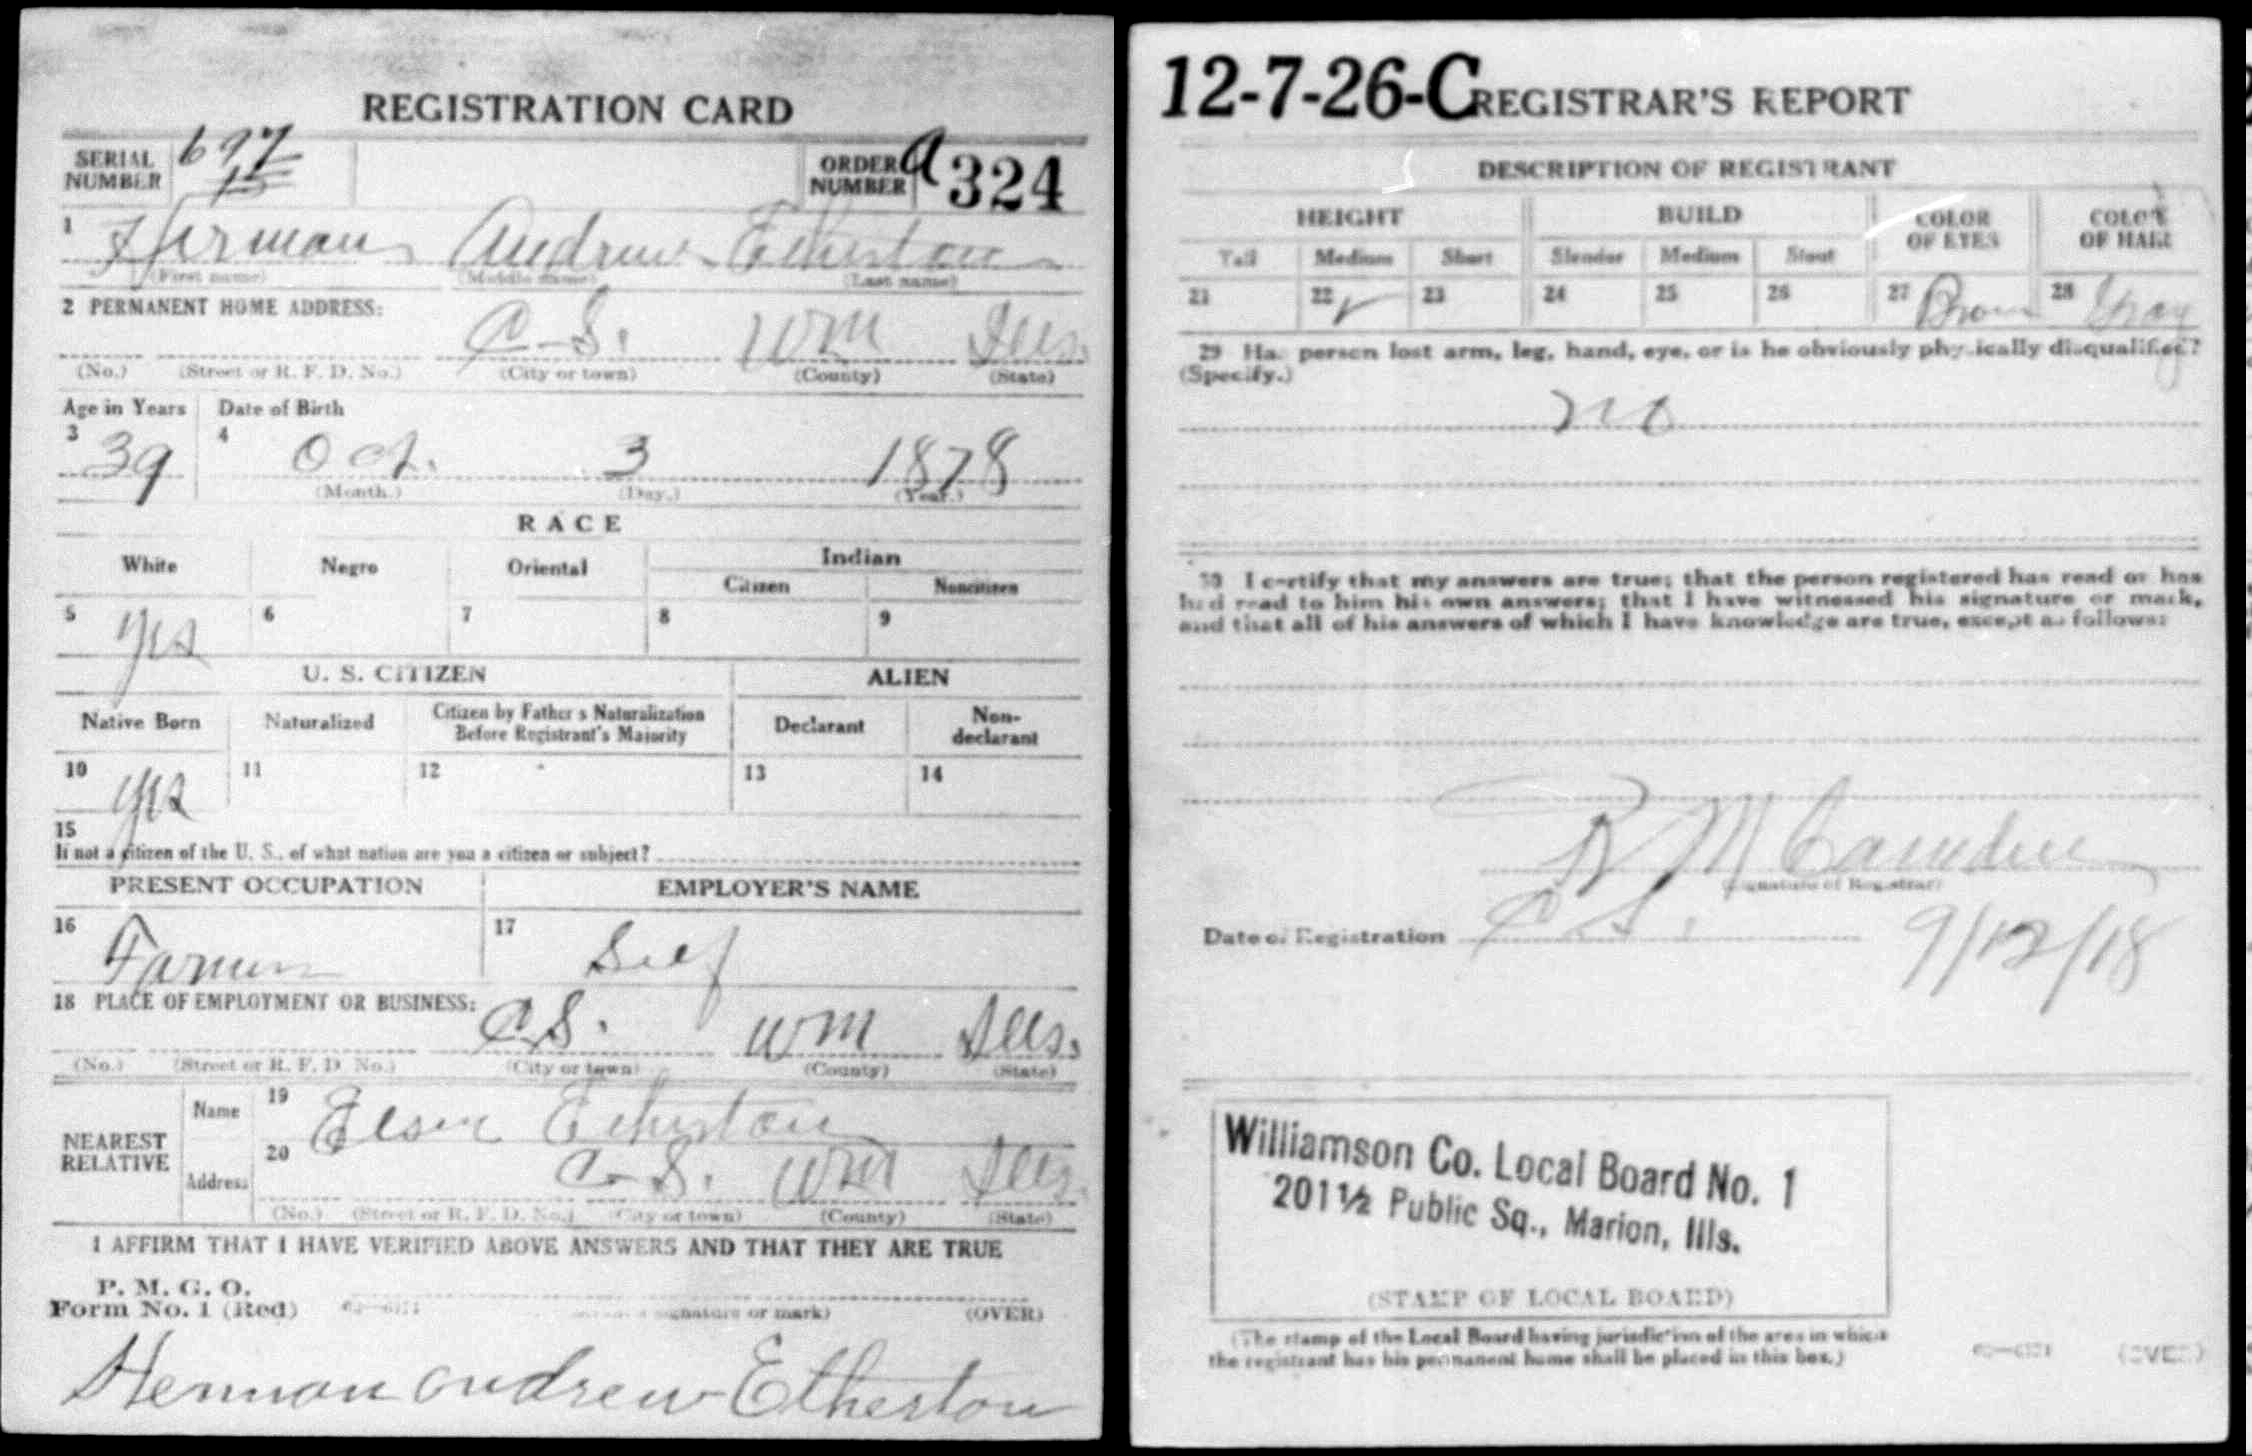 REGISTRATION CARD
SERIAL NUMBER 697 15 ORDER NUMBER A 324
1 Herman Andrew Etherton
(First name) (Middle name) (Last name)
2 PERMANENT HOME ADDRESS:
C-S. Wm Ills.
(No.) (Street or R. F. D. No.) (City or town) (County) (State)
Age in Years Date of Birth
3 39 4 Oct. 3 1878
(Month.) (Day.) (Year.)
RACE
White Negro Oriental Indian
Citizen Noncitizen
5 yes 6 7 8 9
U. S. CITIZEN ALIEN
Native Born Naturalized Citizen by Father's Naturalization Before Registrant's Majority Declarant Non-declarant
10 yes 11 12 13 14
15
If not a citizen of the U. S., of what nation are you a citizen or subject?
PRESENT OCCUPATION EMPLOYER'S NAME
16 Farmer 17 Self
18 PLACE OF EMPLOYMENT OR BUSINESS:
C.S. Wm Ills.
(No.) (Street or R. F. D. No.) (City or town) (County) (State)
NEAREST RELATIVE
Name 19 Etherton
Address 20 C-S. Wm Ills.
(No.) (Street or R. F. D. No.) (City or town) (County) (State)
I AFFIRM THAT I HAVE VERIFIED ABOVE ANSWERS AND THAT THEY ARE TRUE
P. M. G. O.
Form No. 1 (Red) signature or mark) (OVER)
Herman Andrew Etherton
12-7-26-C REGISTRAR'S REPORT
DESCRIPTION OF REGISTRANT
HEIGHT BUILD COLOR OF EYES COLOR OF HAIR
Tall Medium Short Slender Medium Stout
21 22 ✓ 23 24 25 26 27 Brown 28 Gray
29 Has person lost arm, leg, hand, eye, or is he obviously physically disqualified?
(Specify.)
no
30 I certify that my answers are true; that the person registered has read or has
had read to him his own answers; that I have witnessed his signature or mark,
and that all of his answers of which I have knowledge are true, except as follows:
R M Camden
(Signature of Registrar)
Date of Registration C S. 9/12/18
Williamson Co. Local Board No. 1
201½ Public Sq., Marion, Ills.
(STAMP OF LOCAL BOARD)
(The stamp of the Local Board having jurisdiction of the area in which
the registrant has his permanent home shall be placed in this box.)
(OVER)